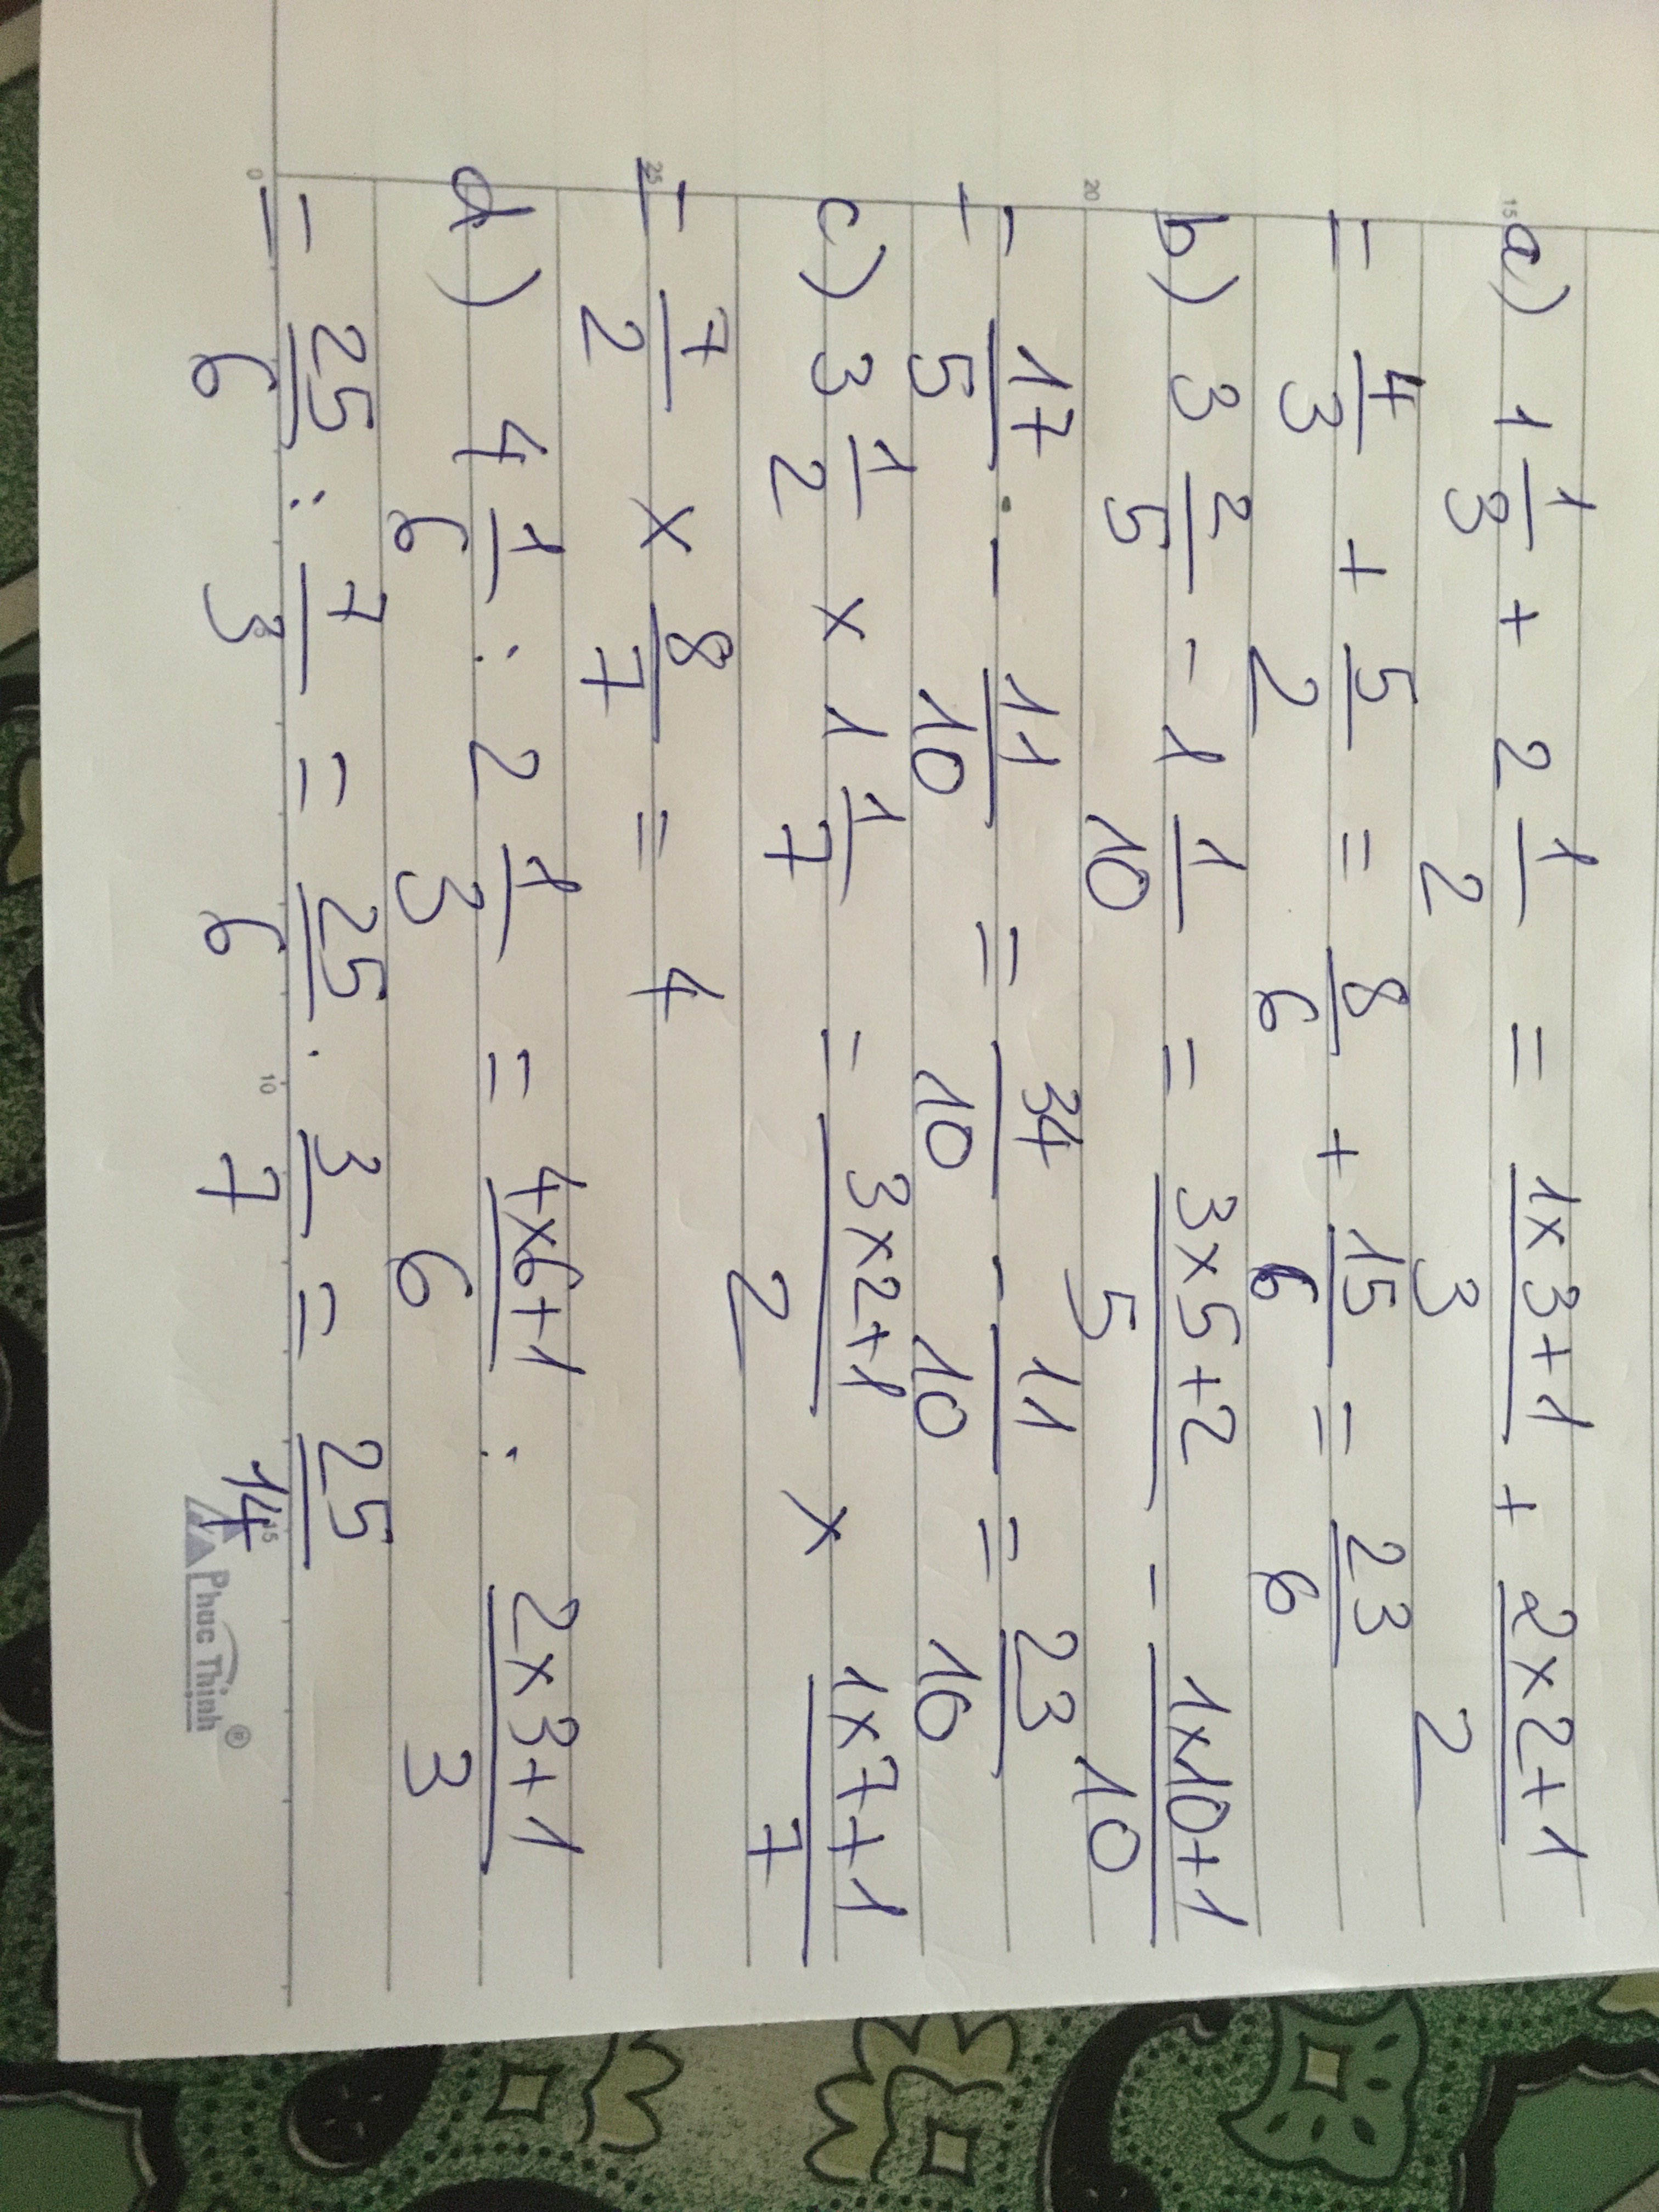 15
a) 1 1/3 + 2 1/2 = (1x3+1)/3 + (2x2+1)/2
= 4/3 + 5/2 = 8/6 + 15/6 = 23/6
b) 3 2/5 - 1 1/10 = (3x5+2)/5 - (1x10+1)/10
20
= 17/5 - 11/10 = 34/10 - 11/10 = 23/10
c) 3 1/2 x 1 1/7 = (3x2+1)/2 x (1x7+1)/7
25
= 7/2 x 8/7 = 4
d) 4 1/6 : 2 1/3 = (4x6+1)/6 : (2x3+1)/3
= 25/6 : 7/3 = 25/6 . 3/7 = 25/14
0 10 15
Phuc Thinh ®